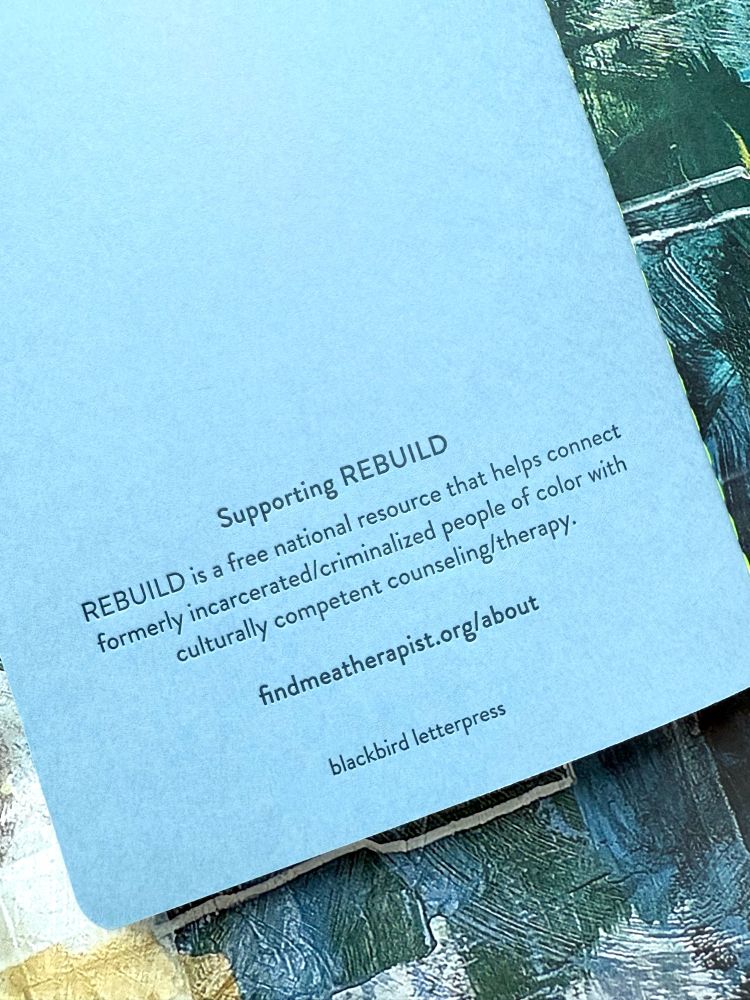 Supporting REBUILD
REBUILD is a free national resource that helps connect
formerly incarcerated/criminalized people of color with
culturally competent counseling/therapy.
findmeatherapist.org/about
blackbird letterpress